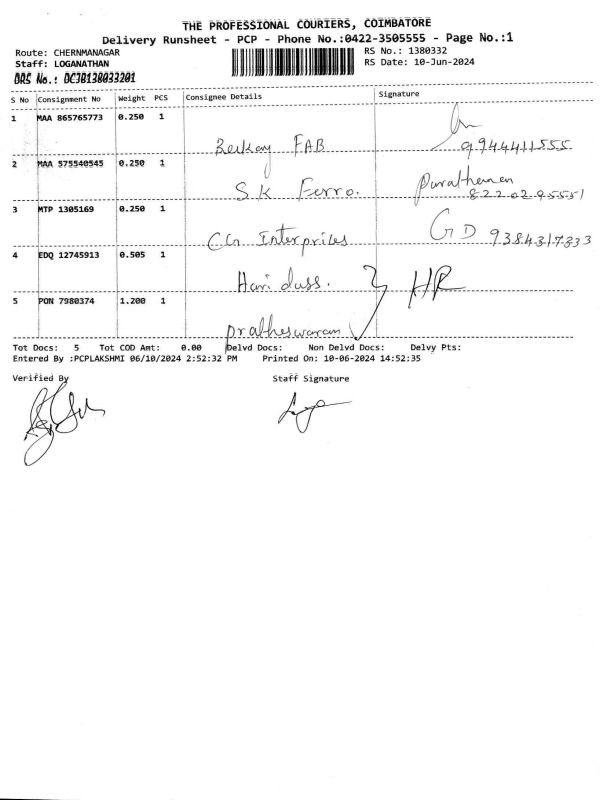 THE PROFESSIONAL COURIERS, COIMBATORE
Delivery Runsheet - PCP - Phone No.:0422-3505555 - Page No.:1
Route: CHERNMANAGAR RS No.: 1380332
Staff: LOGANATHAN RS Date: 10-Jun-2024
DRS No.: DCJB138033201
S No Consignment No Weight PCS Consignee Details Signature
1 MAA 865765773 0.250 1
FAB 9944411555
2 MAA 575540545 0.250 1
S.K Ferro. 8220295551
3 MTP 1305169 0.250 1
CG Enterprises GD 9384317333
4 EDQ 12745913 0.505 1
Hari dass. HR
5 PON 7980374 1.200 1
pratheswaran
Tot Docs: 5 Tot COD Amt: 0.00 Delvd Docs: Non Delvd Docs: Delvy Pts:
Entered By :PCPLAKSHMI 06/10/2024 2:52:32 PM Printed On: 10-06-2024 14:52:35
Verified By Staff Signature